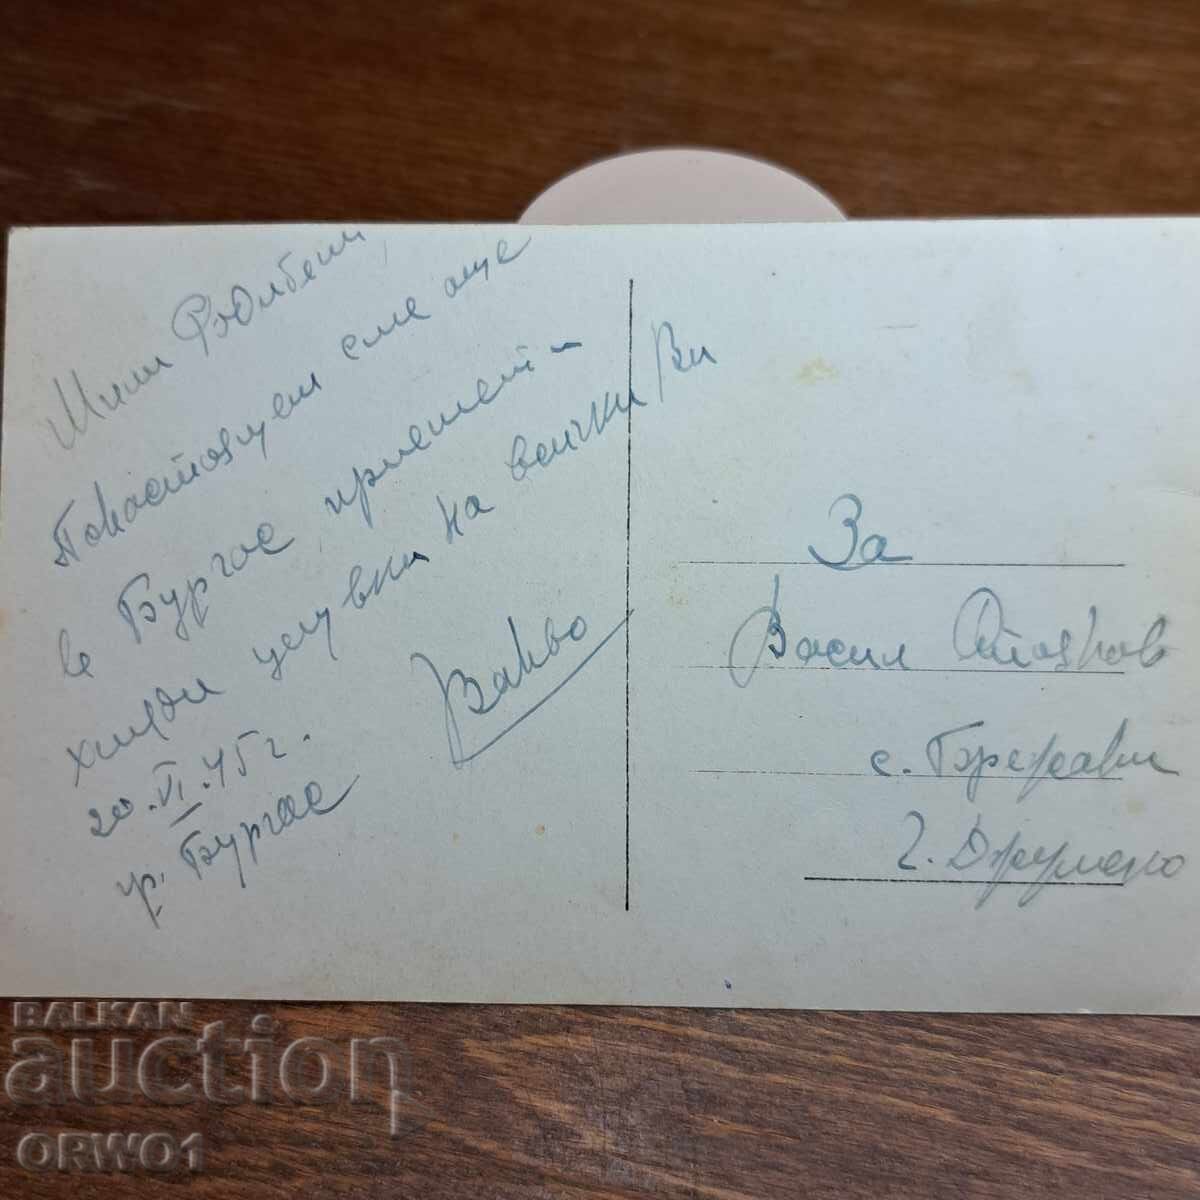 Мили
Понастоящем сме още
в Бургас, приемет-
хиляди целувки на всички Ви
Вакво
20.VI.45г.
гр. Бургас
За
Васил Стоянов
с.
г. Джумено
BALKAN
auction
ORWO1